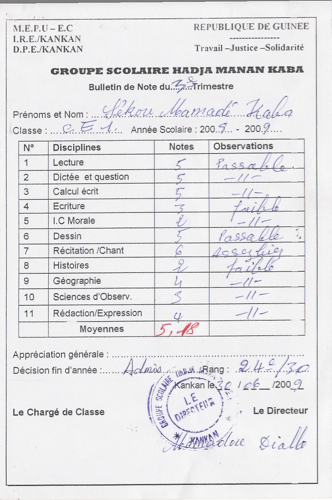 M.E.P.U - E.C
REPUBLIQUE DE GUINEE
I.R.E./KANKAN
D.P.E./KANKAN
Travail –Justice –Solidarité
GROUPE SCOLAIRE HADJA MANAN KABA
Bulletin de Note du 3e Trimestre
Prénoms et Nom : Sékou Mamadi Kaba
Classe : C.E.1. Année Scolaire : 2008 - 2009
N° Disciplines Notes Observations
1 Lecture 5 Passable
2 Dictée et question 5 -//-
3 Calcul écrit 5 -//-
4 Ecriture 3 faible
5 I.C Morale 2 -//-
6 Dessin 5 Passable
7 Récitation /Chant 6
8 Histoires 2 faible
9 Géographie 4 -//-
10 Sciences d'Observ. 3 -//-
11 Rédaction/Expression 4 -//-
Moyennes 5,18
Appréciation générale :
Décision fin d'année : Admis Rang : 24e/30
Kankan le 30/06/2009
Le Chargé de Classe
Le Directeur
GROUPE SCOLAIRE HADJA
LE DIRECTEUR
KANKAN
Mamadou Diallo